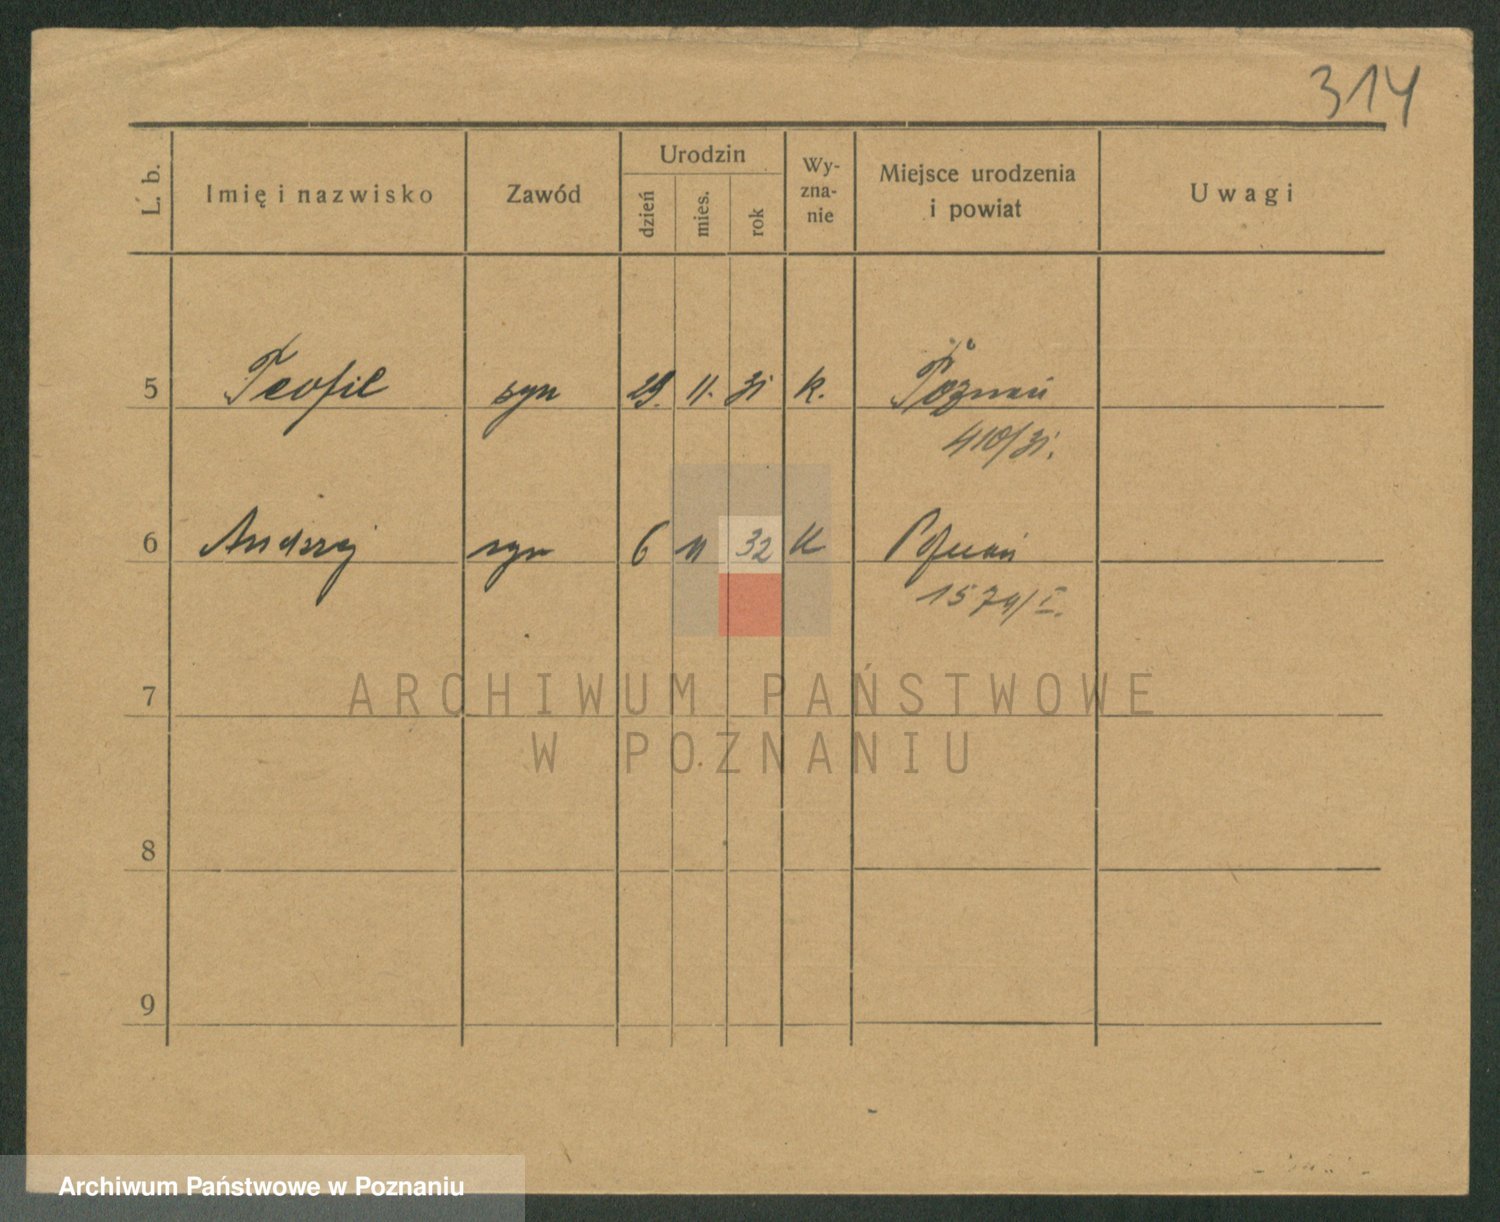 314
L. b.
Imię i nazwisko
Zawód
Urodzin
dzień
mies.
rok
Wy-
zna-
nie
Miejsce urodzenia
i powiat
Uwagi
5 Teofil syn 29. 11. 31 k. Poznań
410/31.
6 Andrzej syn 6 11 32 k Poznań
1574/I.
7
ARCHIWUM PAŃSTWOWE
W POZNANIU
8
9
Archiwum Państwowe w Poznaniu